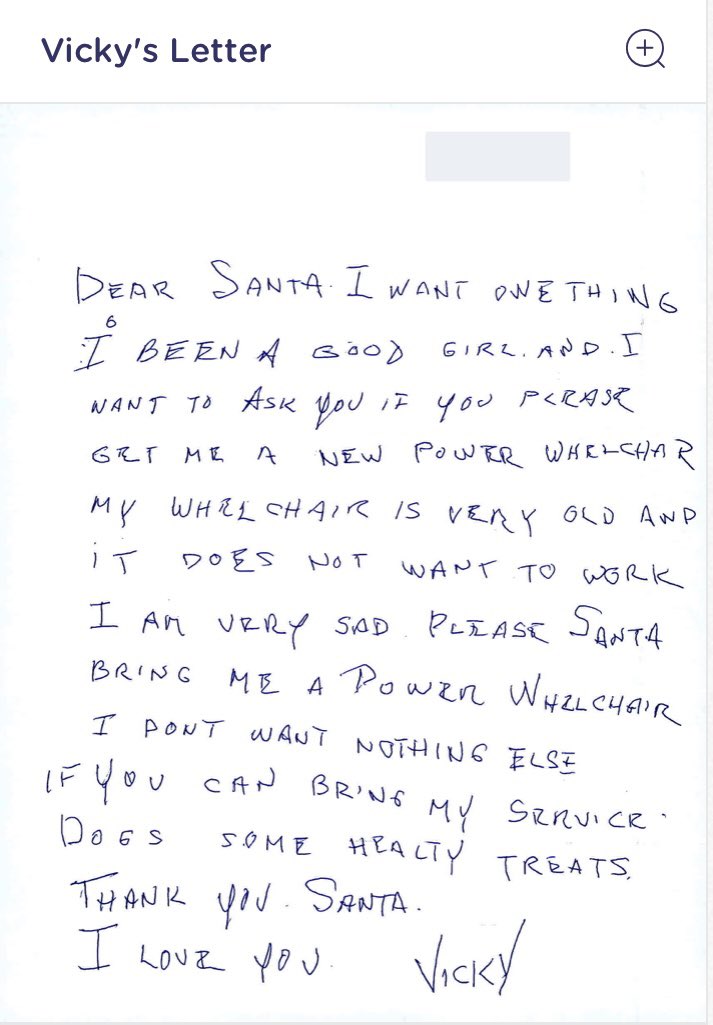 Vicky's Letter
DEAR SANTA. I WANT ONE THING
6
I BEEN A GOOD GIRL. AND. I
WANT TO ASK YOU IF YOU PLEASE
GET ME A NEW POWER WHELCHAR
MY WHELCHAIR IS VERY OLD AND
IT DOES NOT WANT TO WORK
I AM VERY SAD. PLEASE SANTA
BRING ME A POWER WHELCHAIR
I DONT WANT NOTHING ELSE
IF YOU CAN BRING MY SERVICE.
DOGS SOME HEALTY TREATS.
THANK YOU. SANTA.
I LOVE YOU. VICKY